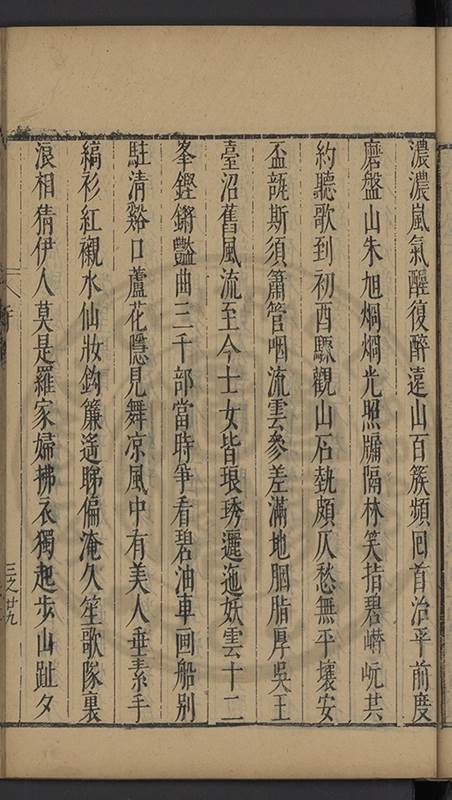 濃濃嵐氣醒復醉遠山百簇頻回首治平前度
磨盤山朱旭烱烱光照牖隔林笑指碧巑岏共
約聽歌到初酉驟觀山石熱頗仄愁無平壤安
盃瓿斯須簫管咽流雲參差滿地胭脂厚吳王
臺沼舊風流至今士女皆琅琇邐迤妖雲十二
峯鏗鏘豔曲三千部當時爭看碧油車畫船別
駐清谿口蘆花隱見舞凉風中有美人垂素手
縞衫紅襯水仙妝鈎簾遙睇偏淹久笙歌隊裏
浪相猜伊人莫是羅家婦拂衣獨起步山趾夕
三之廿九